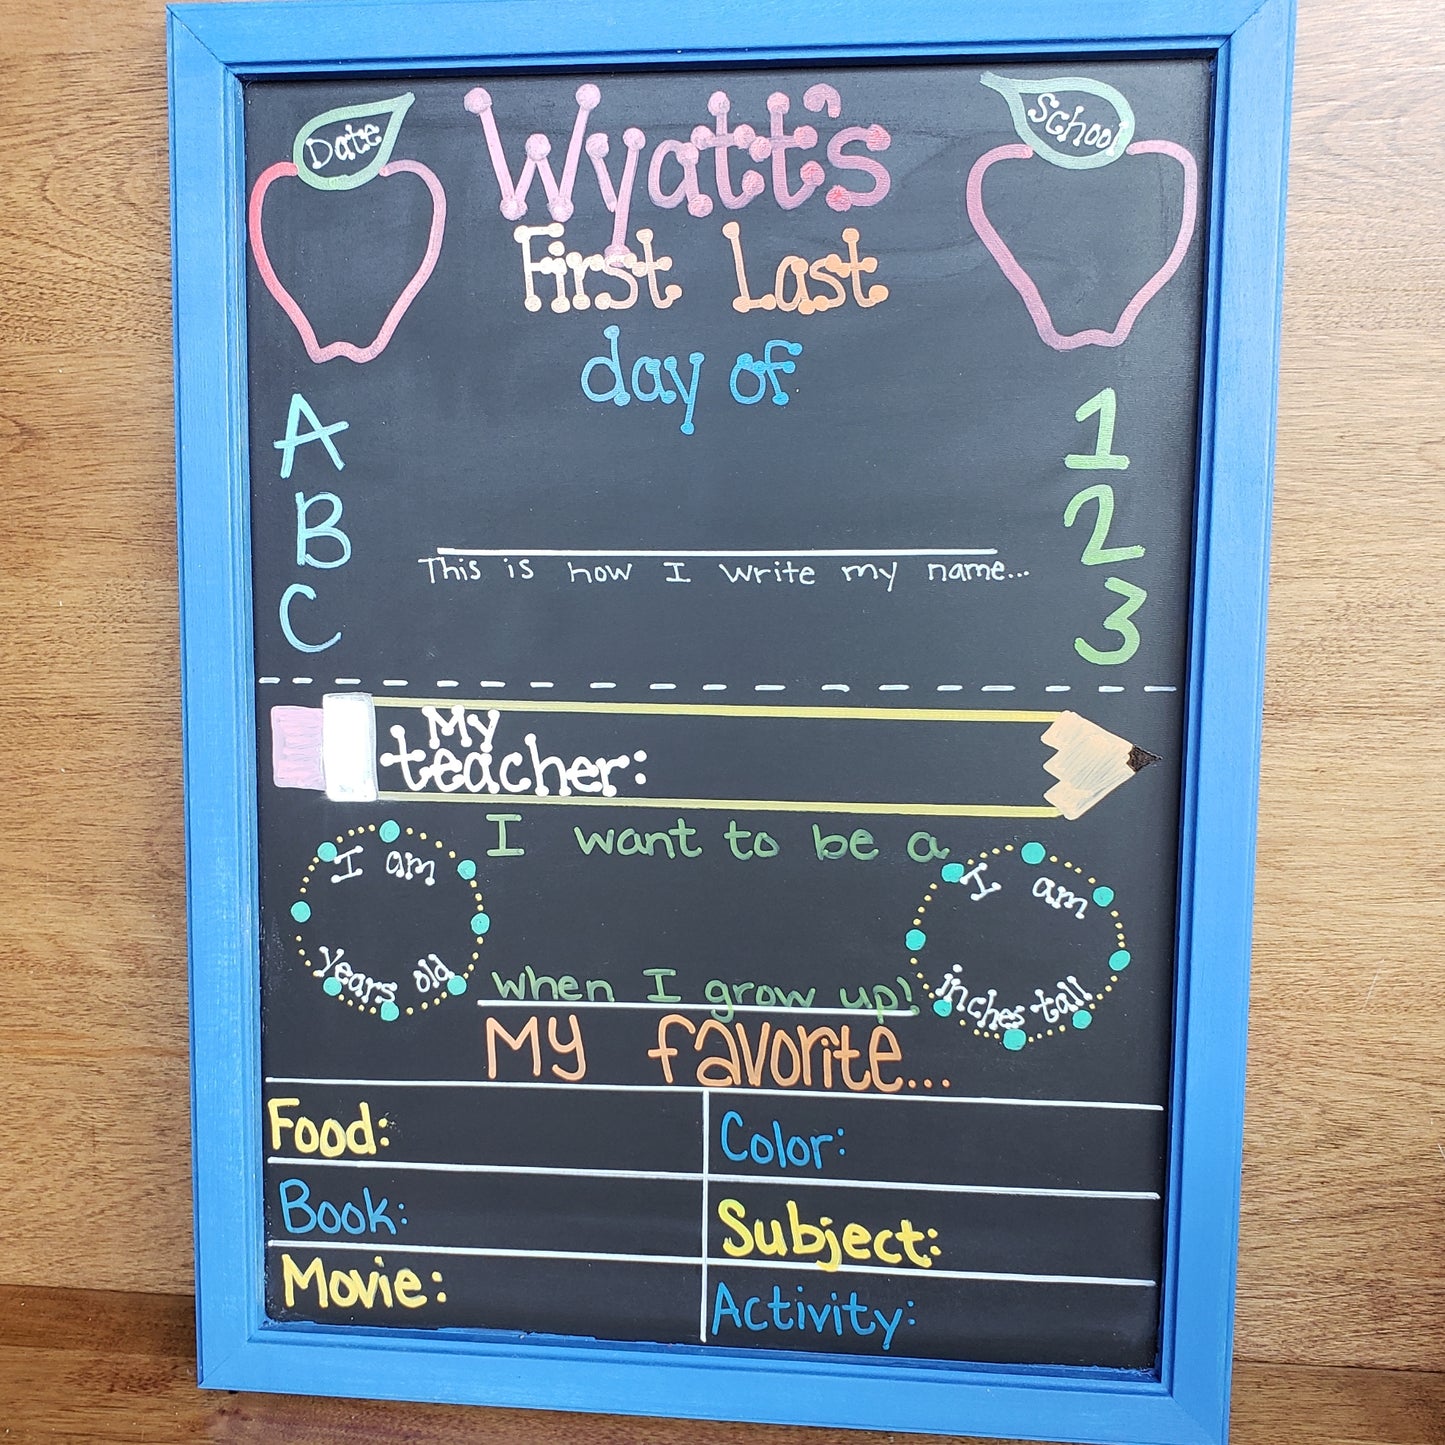 Date
School
Wyatt's
First Last
day of
A
B
C
1
2
3
This is how I write my name...
My
teacher:
I want to be a
when I grow up!
I am
years old
I am
inches tall
My favorite...
Food:
Color:
Book:
Subject:
Movie:
Activity: